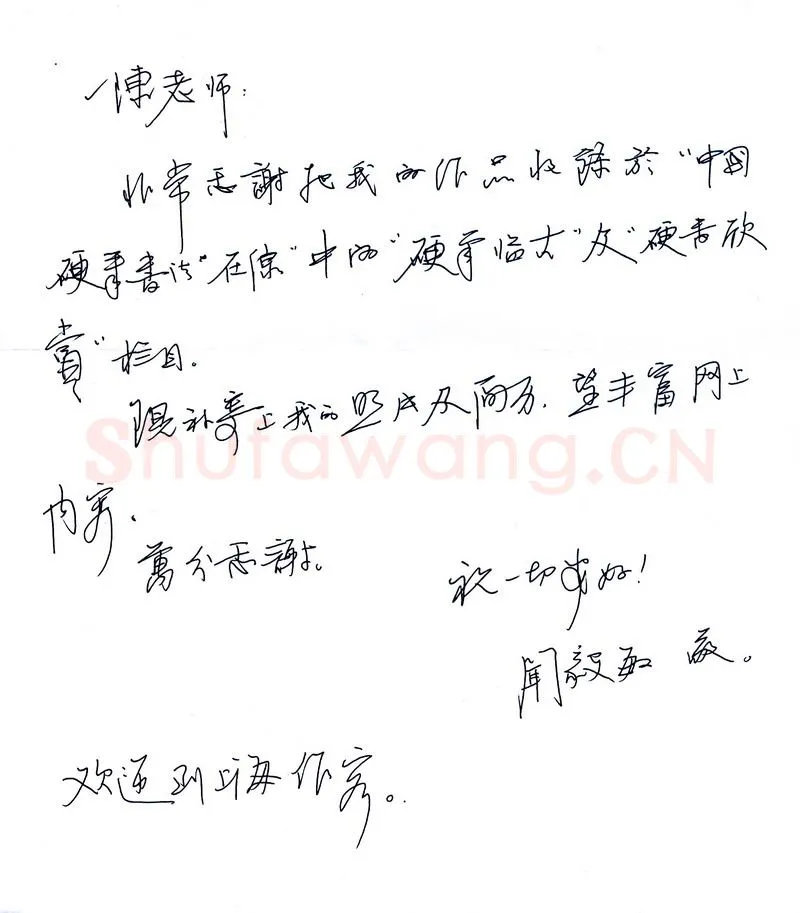 陳老师:
非常感謝把我的作品收錄於"中国
硬筆書法"在線"中的"硬筆临古"及"硬書欣
賞"栏目.
现补寄上我的照片及简历.望丰富网上
内容.
萬分感謝。
祝一切安好!
聞毅敏 敬。
欢迎到上海作客。
Shufawang.CN